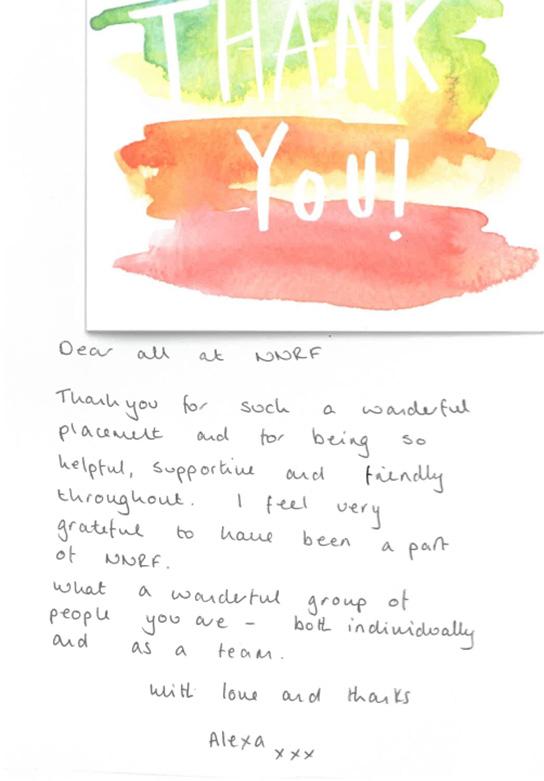 THANK
You!
Dear all at NNRF
Thank you for such a wonderful
placement and for being so
helpful, supportive and friendly
throughout. I feel very
grateful to have been a part
of NNRF.
What a wonderful group of
people you are - both individually
and as a team.
With love and thanks
Alexa xxx